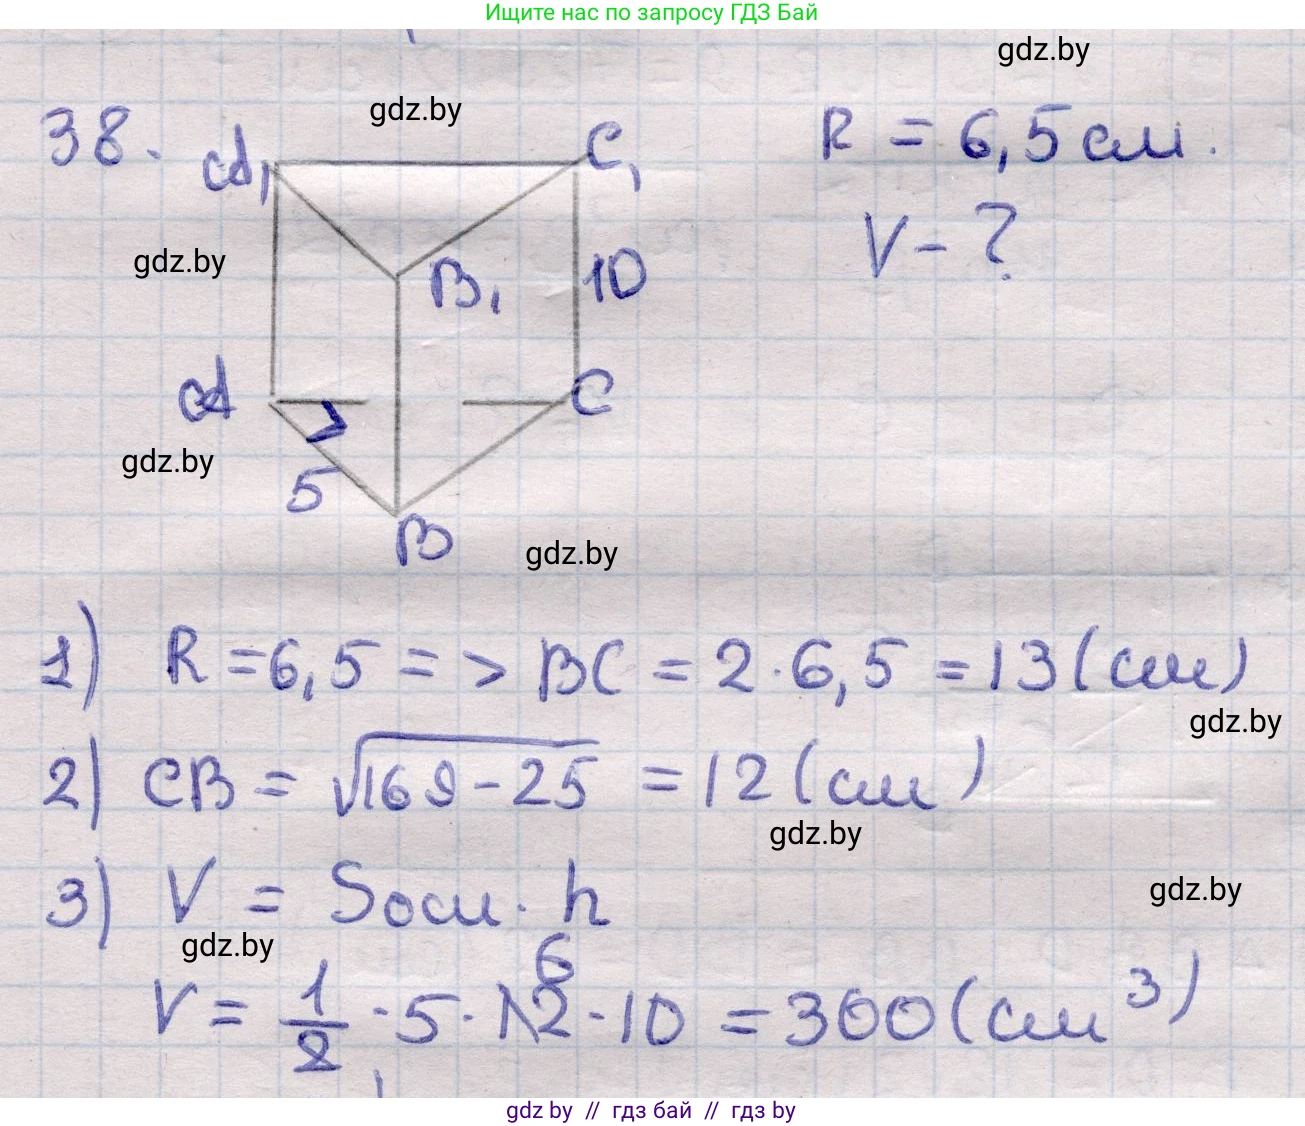 Ищите нас по запросу ГДЗ Бай
gdz.by
gdz.by
38.
A₁
C₁
R = 6,5 см.
V - ?
gdz.by
B₁
10
A
C
gdz.by
5
B
gdz.by
1) R = 6,5 => BC = 2 · 6,5 = 13 (см)
gdz.by
2) CB = √169 - 25 = 12 (см)
gdz.by
3) V = Sосн · h
gdz.by
gdz.by
6
V = 1/2 · 5 · 12 · 10 = 300 (см³)
gdz.by // гдз бай // гдз by